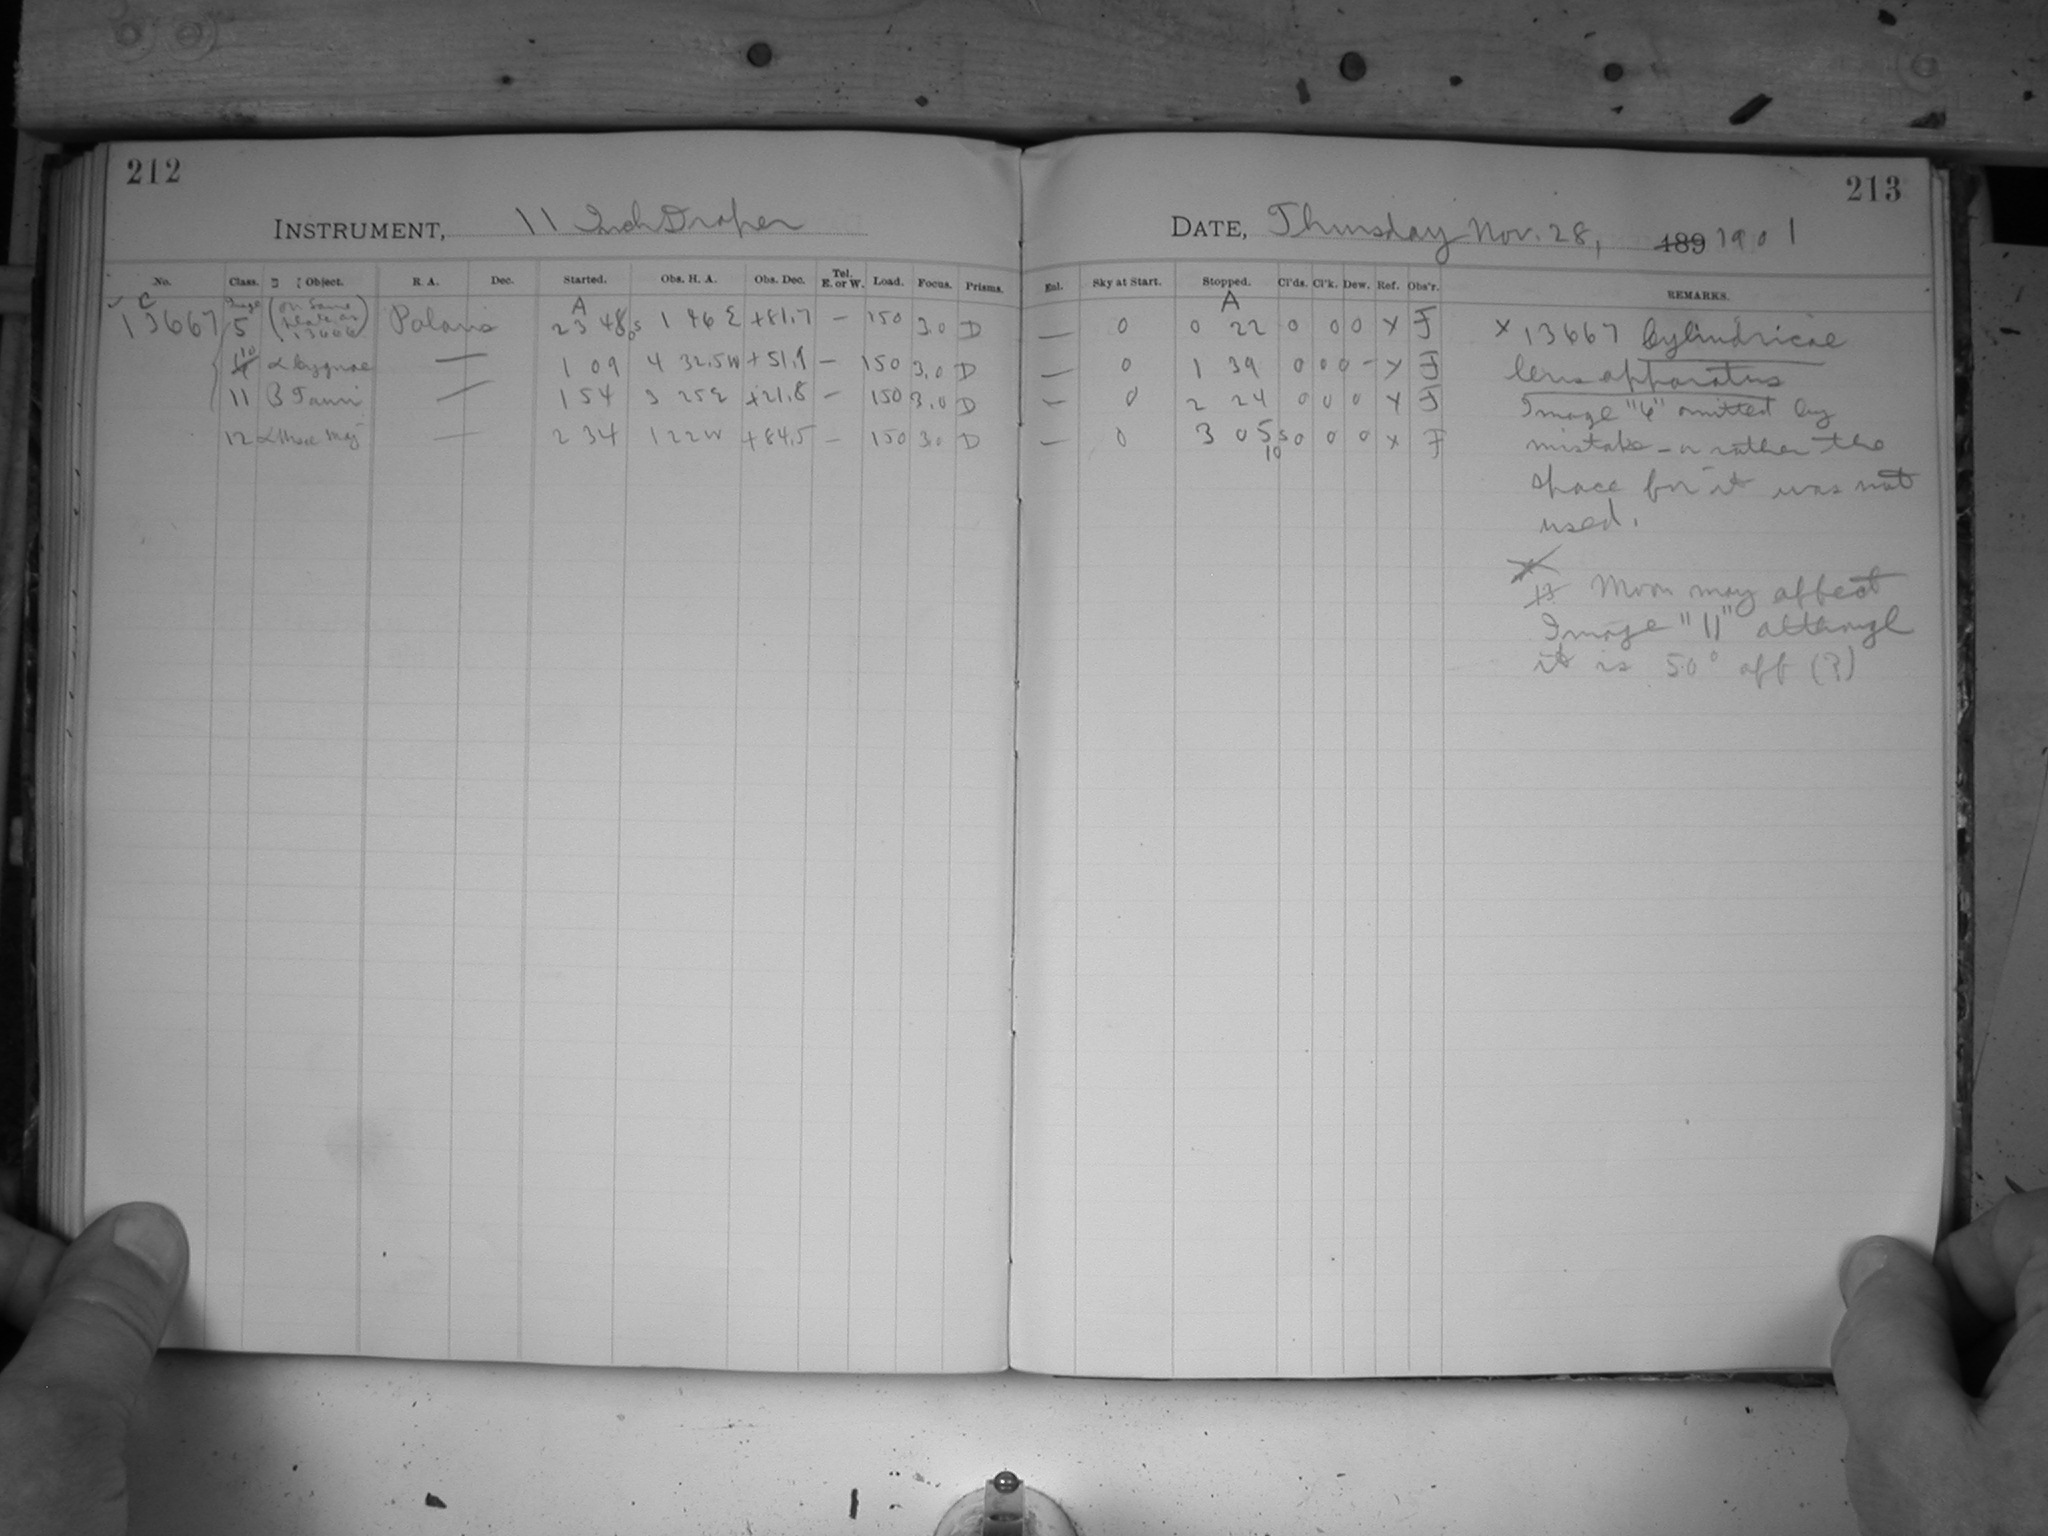 212
213
INSTRUMENT, 11 Inch Draper
DATE, Thursday Nov. 28, 189 1901
No. Class. Object. R. A. Dec. Started. Obs. H. A. Obs. Dec. Tel. E. or W. Load. Focus. Prisms. Enl. Sky at Start. Stopped. Cl'ds. Cl'k. Dew. Ref. Obs'r. REMARKS.
A A
C 13667 Image 5 (on same plate as 13666) Polaris 23 48 1 46 E +81.7 — 150 3.0 D — 0 0 22 0 0 0 X F
10 α Cygnae — 1 09 4 32.5W +51.9 — 150 3.0 D — 0 1 39 0 0 0 - X F
11 β Tauri — 1 54 3 25E +21.8 — 150 3.0 D — 0 2 24 0 0 0 X F
12 — 2 34 1 22W +84.5 — 150 3.0 D — 0 3 05 10 0 0 0 X F
X 13667 Cylindrical
lens apparatus
Image "6" omitted by
mistake — or rather the
space for it was not
used.
Moon may affect
Image "11" although
it is 50° off (?)